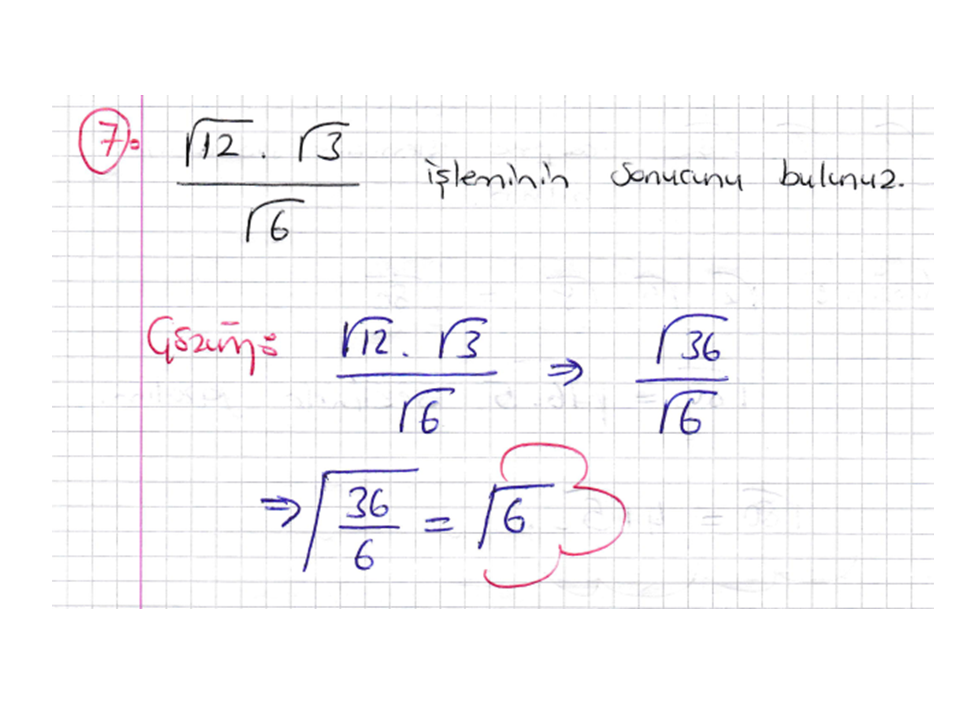 7: √12 . √3 / √6 işleminin sonucunu bulunuz.
Çözüm: √12 . √3 / √6 ⇒ √36 / √6
⇒ √(36/6) = √6